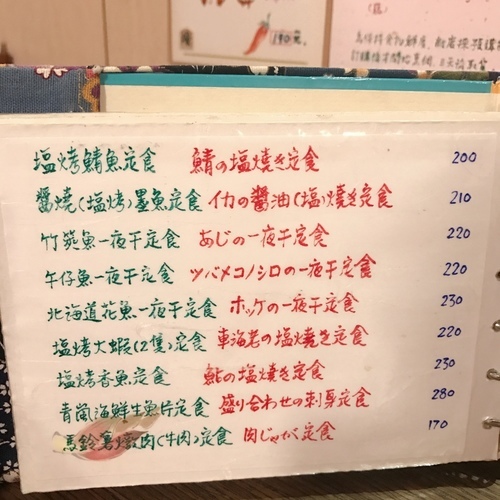 190元
塩烤鯖魚定食 鯖の塩焼き定食 200
醬燒(塩烤)墨魚定食 イカの醤油(塩)焼き定食 210
竹筴魚一夜干定食 あじの一夜干定食 220
午仔魚一夜干定食 ツバメコノシロの一夜干定食 220
北海道花魚一夜干定食 ホッケの一夜干定食 230
塩烤大蝦(2隻)定食 車海老の塩焼き定食 220
塩烤香魚定食 鮎の塩焼き定食 230
青嵐海鮮生魚片定食 盛り合わせの刺身定食 280
馬鈴薯燉肉(牛肉)定食 肉じゃが定食 170